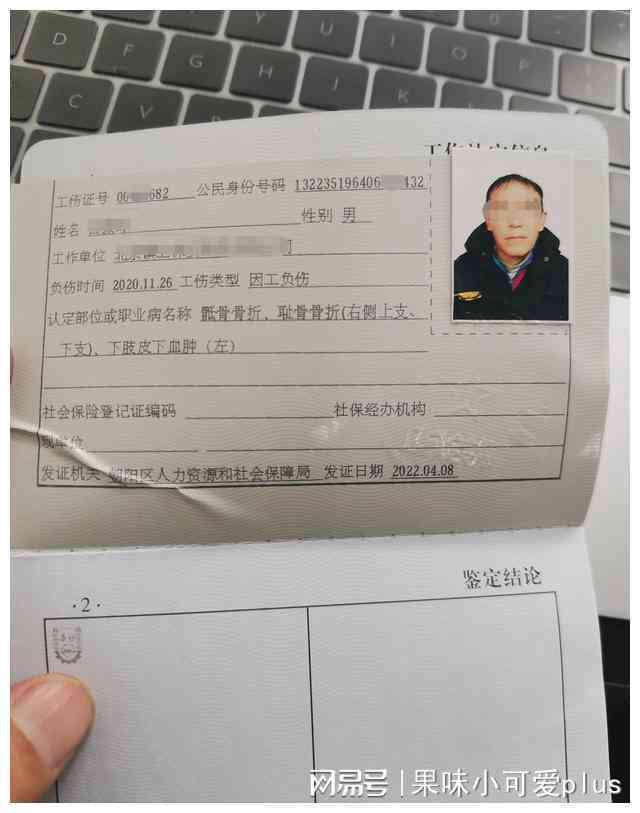 D F G H U I O P C V B N K L
工伤证号 06 682 公民身份号码 132235196406 432
姓名 性别 男
工作单位
负伤时间 2020.11.26 工伤类型 因工负伤
认定部位或职业病名称 骶骨骨折、耻骨骨折(右侧上支、
下支)、下肢皮下血肿（左）
社会保险登记证编码 社保经办机构
现单位
发证机关 朝阳区人力资源和社会保障局 发证日期 2022.04.08
鉴定结论
·2·
网易号 | 果味小可爱plus